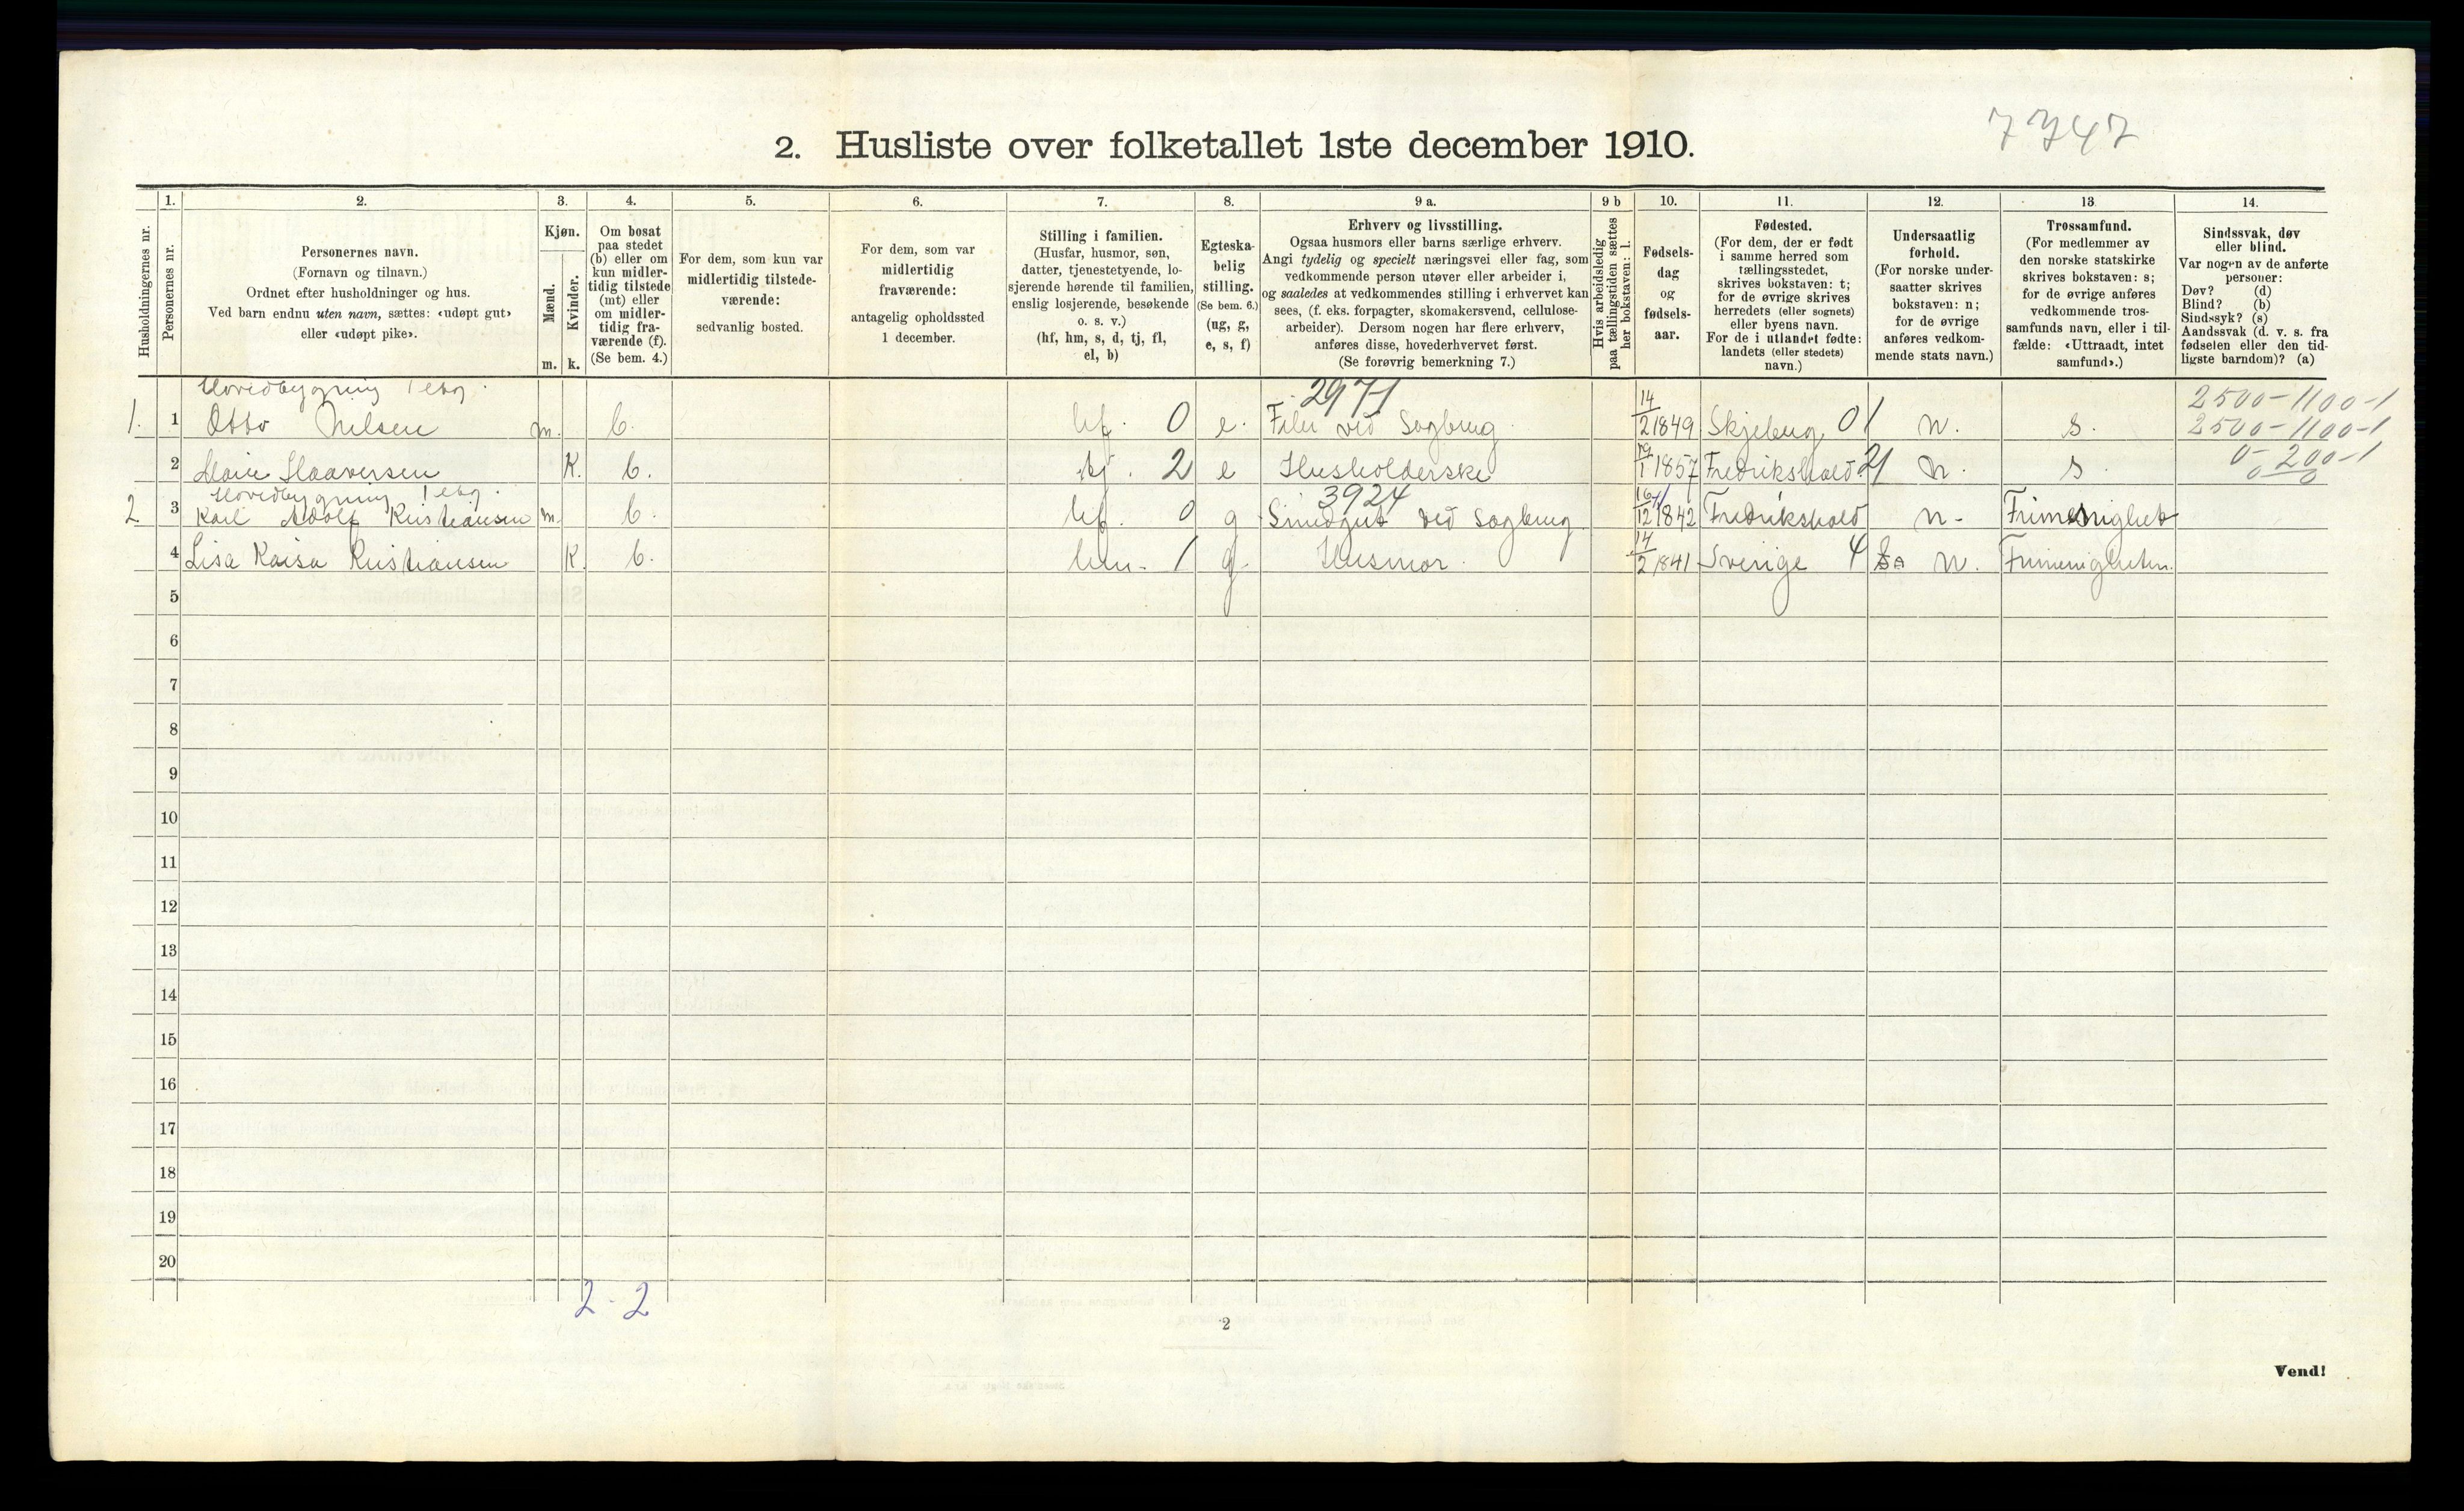 7747
2. Husliste over folketallet 1ste december 1910.
Husholdningernes nr.
1.
Personernes nr.
2.
Personernes navn.
(Fornavn og tilnavn.)
Ordnet efter husholdninger og hus.
Ved barn endnu uten navn, sættes: «udøpt gut»
eller «udøpt pike».
3.
Kjøn.
Mænd.
Kvinder.
m. k.
4.
Om bosat
paa stedet
(b) eller om
kun midler-
tidig tilstede
(mt) eller
om midler-
tidig fra-
værende (f).
(Se bem. 4.)
5.
For dem, som kun var
midlertidig tilstede-
værende:
sedvanlig bosted.
6.
For dem, som var
midlertidig
fraværende:
antagelig opholdssted
1 december.
7.
Stilling i familien.
(Husfar, husmor, søn,
datter, tjenestetyende, lo-
sjerende hørende til familien,
enslig losjerende, besøkende
o. s. v.)
(hf, hm, s, d, tj, fl,
el, b)
8.
Egteska-
belig
stilling.
(Se bem. 6.)
(ug, g,
e, s, f)
9 a.
Erhverv og livsstilling.
Ogsaa husmors eller barns særlige erhverv.
Angi tydelig og specielt næringsvei eller fag, som
vedkommende person utøver eller arbeider i,
og saaledes at vedkommendes stilling i erhvervet kan
sees, (f. eks. forpagter, skomakersvend, cellulose-
arbeider). Dersom nogen har flere erhverv,
anføres disse, hovederhvervet først.
(Se forøvrig bemerkning 7.)
9 b
Hvis arbeidsledig
paa tællingstiden sættes
her bokstaven: l.
10.
Fødsels-
dag
og
fødsels-
aar.
11.
Fødested.
(For dem, der er født
i samme herred som
tællingsstedet,
skrives bokstaven: t;
for de øvrige skrives
herredets (eller sognets)
eller byens navn.
For de i utlandet fødte:
landets (eller stedets)
navn.)
12.
Undersaatlig
forhold.
(For norske under-
saatter skrives
bokstaven: n;
for de øvrige
anføres vedkom-
mende stats navn.)
13
Trossamfund.
(For medlemmer av
den norske statskirke
skrives bokstaven: s;
for de øvrige anføres
vedkommende tros-
samfunds navn, eller i til-
fælde: «Uttraadt, intet
samfund».)
14.
Sindssvak, døv
eller blind.
Var nogen av de anførte
personer:
Døv? (d)
Blind? (b)
Sindssyk? (s)
Aandssvak (d. v. s. fra
fødselen eller den tid-
ligste barndom)? (a)
Hovedbygning 1 etg. 2971 14 2500-1100-1
1. 1 Otto Nilsen m. b. hf. 0 e. Filer ved Sagbrug 2 1849 Skjeberg 01 n. s. 2500-1100-1
2 K. b. tj. 2 e Husholderske 1 1857 Fredrikshald 21 n. s. 0-200-1
Hovedbygning 1 etg. 3924 16 0 0
2 3 Karl Adolf Kristiansen m. b. hf. 0 g Smedgut ved Sagbrug 12 1842 Fredrikshald n. Frimenighet
14
4 Lisa Kaisa Kristiansen K. b. hm. 1 g. Husmor. 2 1841 Sverige 4 n. Frimenigheten.
5
6
7
8
9
10
11
12
13
14
15
16
17
18
19
20
2 - 2
2
Vend!